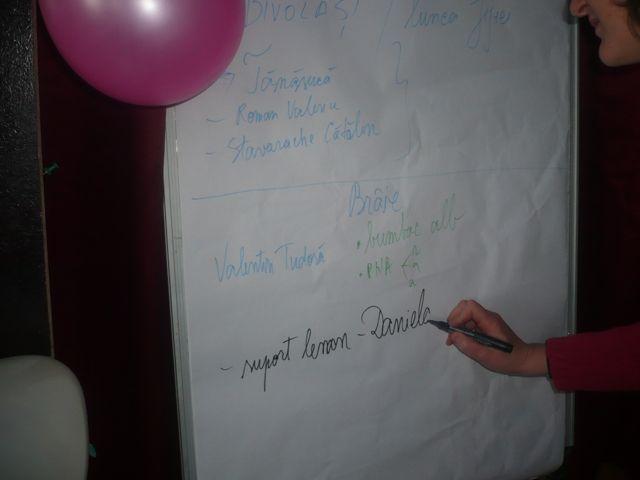 DIVOLAȘ / lunca
Tănăsucă
- Roman Valeriu
- Stavarache Cătălin
Brâie
Valentin Tudoră
• bumbac alb
• PNA
- suport lemn - Daniela